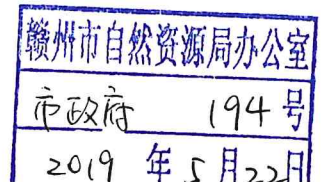 赣州市自然资源局办公室
市政府 194号
2019年5月22日